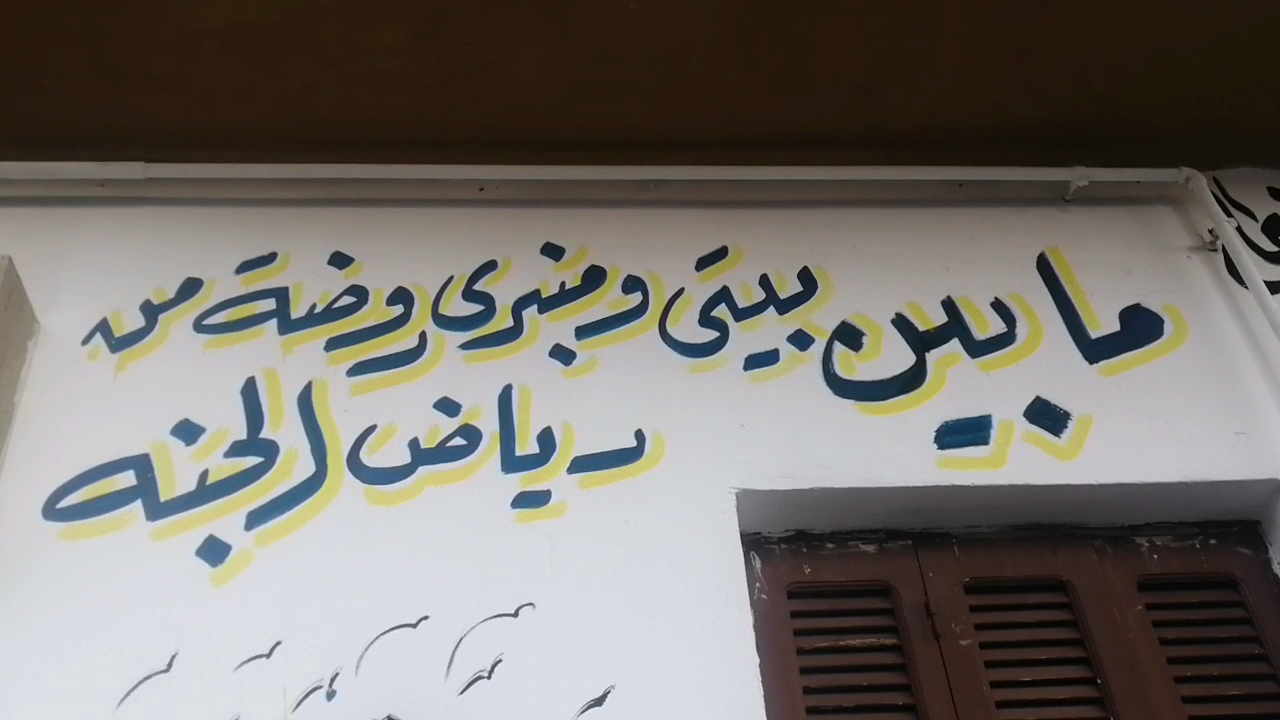 ما بين بيتى ومنبرى روضة من
رياض الجنه